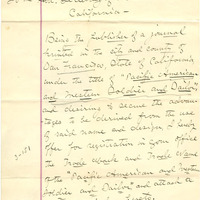 California –
Being the Publisher of a journal
printed in the city and county of
San Francisco State of California
under the title of "Pacific American
and Western Soldier and Sailor"
and desiring to secure the advan-
tages to be derived from the use
of said name and design, I hereby
offer for registration in your office
the Trade Mark and Trade Name
of the "Pacific American and Western
Soldier and Sailor" and attach to